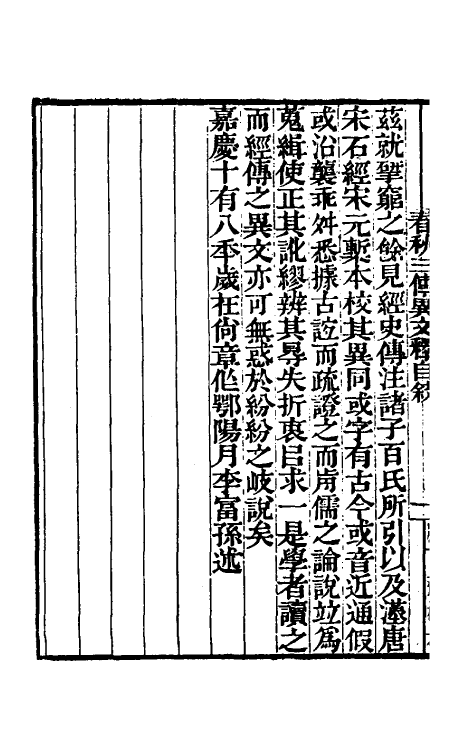 春秋三傳異文釋自敘
茲就揅竆之餘見經史傳注諸子百氏所引以及漢唐
宋石經宋元槧本校其異同或字有古今或音近通假
或沿襲乖舛悉據古誼而疏證之而歬儒之論說竝爲
蒐緝使正其訛繆辨其㝵失折衷㠯求一是學者讀之
而經傳之異文亦可無惑於紛紛之岐說矣
嘉慶十有八秊歲在尙章作鄂陽月李富孫述